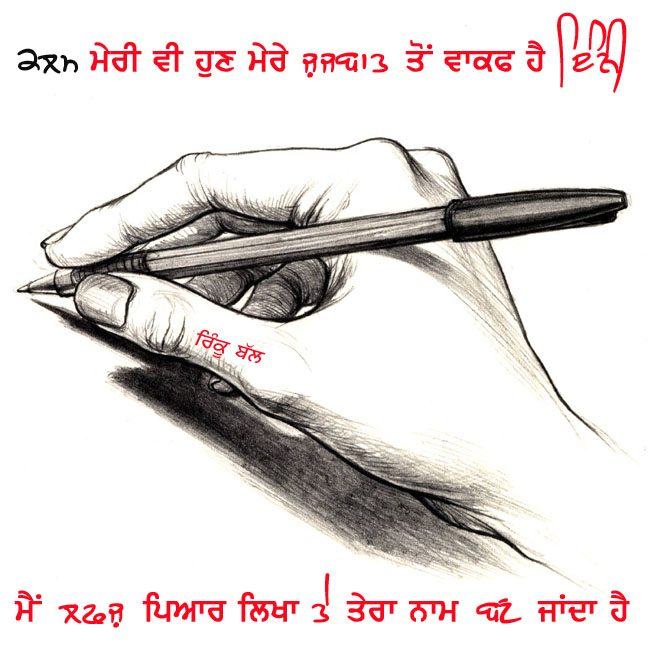 ਕਲਮ ਮੇਰੀ ਵੀ ਹੁਣ ਮੇਰੇ ਜ਼ਜਬਾਤ ਤੋਂ ਵਾਕਫ ਹੈ ਇੰਨੀ
ਰਿੰਕੂ ਬੱਲ
ਮੈਂ ਲਫਜ਼ ਪਿਆਰ ਲਿਖਾ ਤੇ ਤੇਰਾ ਨਾਮ ਬਣ ਜਾਂਦਾ ਹੈ